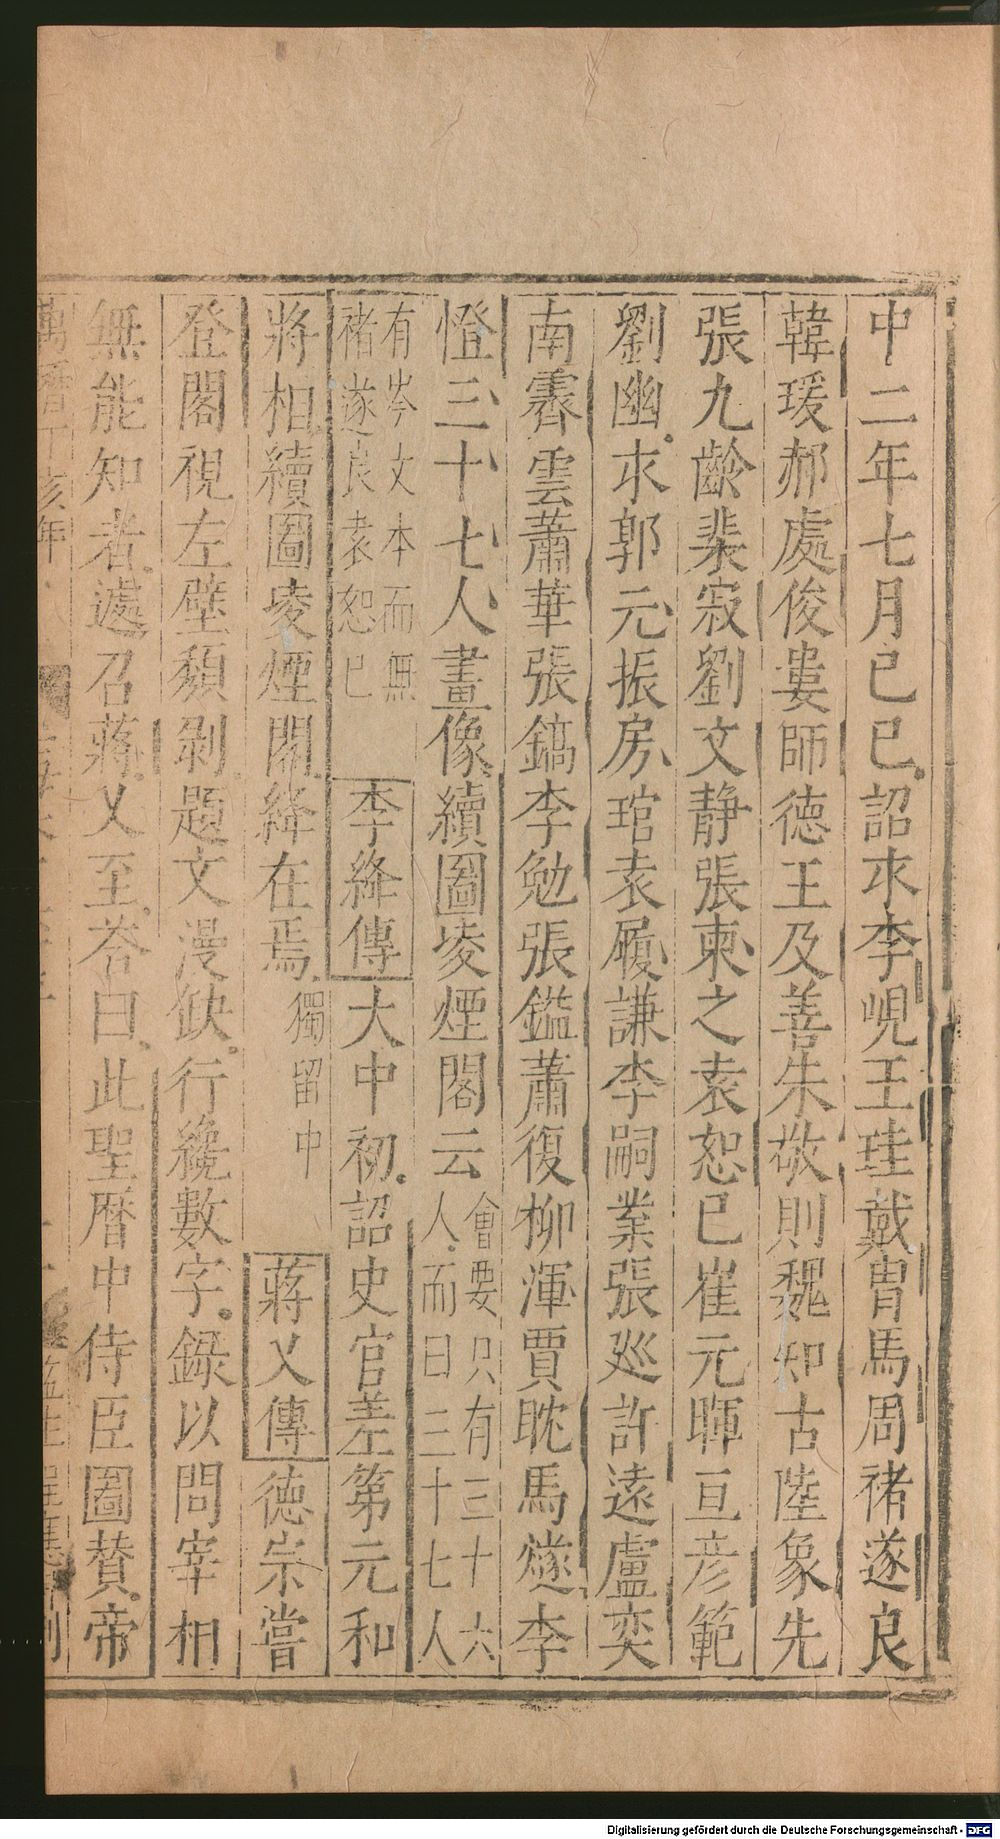 中二年七月己巳詔求李峴王珪戴胄馬周禇遂良
韓瑗郝處俊婁師德王及善朱敬則魏知古陸象先
張九齡裴寂劉文靜張柬之袁恕己崔元暉亘彥範
劉幽求郭元振房琯袁履謙李嗣業張巡許遠盧奕
南霽雲蕭華張鎬李勉張鎰蕭復柳渾賈耽馬燧李
憕三十七人畫像續圖凌煙閣云會要只有三十六
人而曰三十七人
有岑文本而無
禇遂良袁恕己
李絳傳大中初詔史官差第元和
將相續圖凌煙閣絳在焉獨留中
蔣乂傳德宗嘗
登閣視左壁頽剝題文漫缺行纔數字錄以問宰相
無能知者遽召蔣乂至荅曰此聖曆中侍臣圖賛帝
亥年
Digitalisierung gefördert durch die Deutsche Forschungsgemeinschaft - DFG